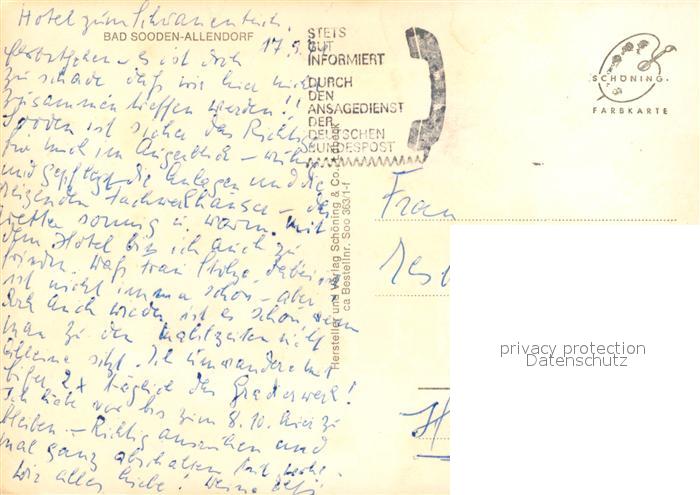 Hotel zum Schwanenteich.
BAD SOODEN-ALLENDORF
17.9.
es ist doch
zu schade daß wir hier nicht
zusammen treffen werden!!
Sooden ist sicher das Richtige
für mich im Augenblick - ruhig
und gepflegt die Anlagen und die
reizenden Fachwerkhäuser - das
Wetter sonnig u. warm. Mit
dem Hotel bin ich auch zu
frieden. Daß Frau Stolze dabei
ist nicht immer schön - aber
auch wieder ist es schön, wenn
man zu den Mahlzeiten nicht
alleine sitzt. Ich umwandere mit
2x täglich das Gradierwerk!
Ich habe vor bis zum 8.10. hier zu
bleiben - Richtig ausruhen und
mal ganz abschalten
alles Liebe! Deine
STETS
GUT
INFORMIERT
DURCH
DEN
ANSAGEDIENST
DER
DEUTSCHEN
BUNDESPOST
SCHÖNING
FARBKARTE
Hersteller und Verlag Schöning & Co.
Bestellnr. Soo 363/1-f
Frau
privacy protection
Datenschutz